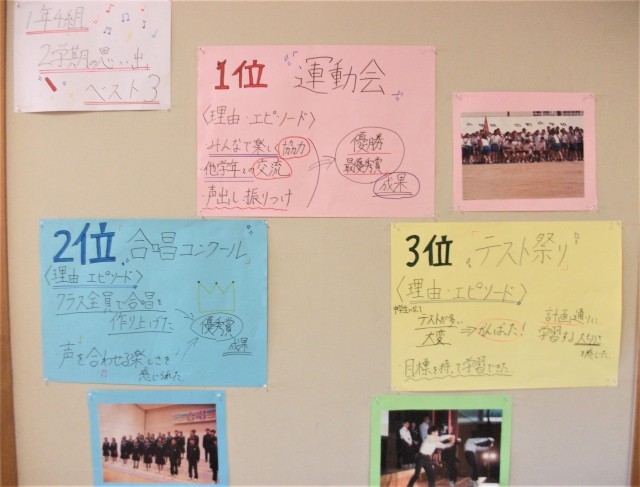 1年4組
2学期の思い出
ベスト3
1位 運動会
〈理由・エピソード〉
みんなで楽しく協力
他学年との交流
声出し・振りつけ
優勝
最優秀賞
成果
2位 合唱コンクール
〈理由・エピソード〉
クラス全員で合唱を
作り上げた
優秀賞
成果
声を合わせる楽しさを
感じられた
3位 テスト祭り
〈理由・エピソード〉
テストが多い
大変
⇒がんばった!
計画通りに
学習する大切さ
を感じた
目標を持って学習できた